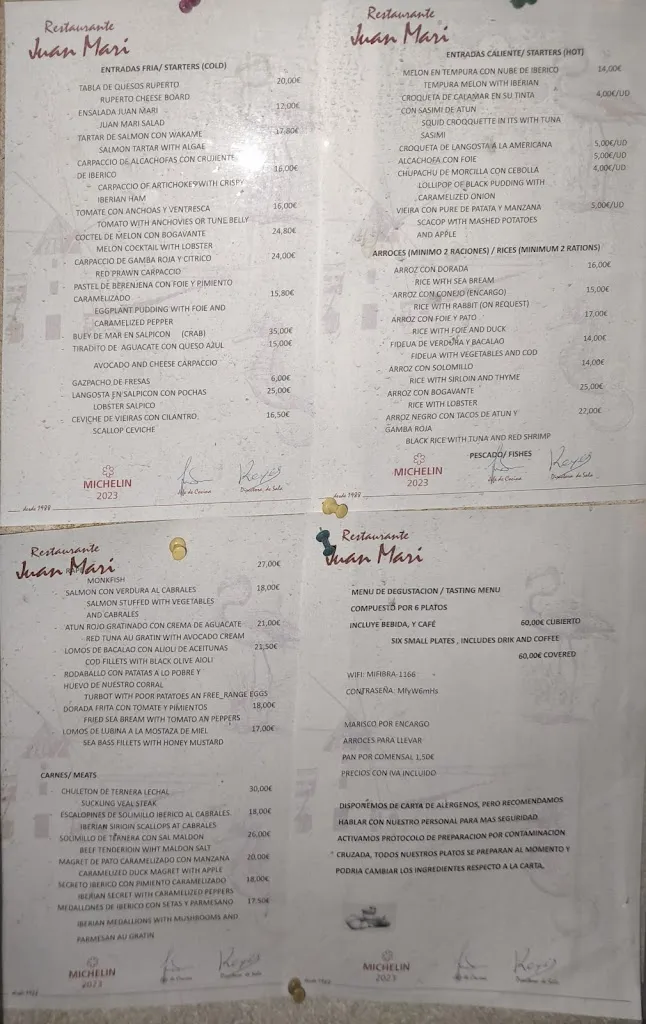 Restaurante
Juan Mari
ENTRADAS FRIA/ STARTERS (COLD)
TABLA DE QUESOS RUPERTO 20,00€
RUPERTO CHEESE BOARD
ENSALADA JUAN MARI 12,00€
JUAN MARI SALAD
TARTAR DE SALMON CON WAKAME 17,80€
SALMON TARTAR WITH ALGAE
CARPACCIO DE ALCACHOFAS CON CRUJIENTE
DE IBERICO 16,00€
CARPACCIO OF ARTICHOKE9WITH CRISPY
IBERIAN HAM
TOMATE CON ANCHOAS Y VENTRESCA 16,00€
TOMATO WITH ANCHOVIES OR TUNE BELLY
COCTEL DE MELON CON BOGAVANTE 24,80€
MELON COCKTAIL WITH LOBSTER
CARPACCIO DE GAMBA ROJA Y CITRICO 24,00€
RED PRAWN CARPACCIO
PASTEL DE BERENJENA CON FOIE Y PIMIENTO
CARAMELIZADO 15,80€
EGGPLANT PUDDING WITH FOIE AND
CARAMELIZED PEPPER
BUEY DE MAR EN SALPICON (CRAB) 35,00€
TIRADITO DE AGUACATE CON QUESO AZUL 15,00€
AVOCADO AND CHEESE CARPACCIO
GAZPACHO DE FRESAS 6,00€
LANGOSTA EN SALPICON CON POCHAS 25,00€
LOBSTER SALPICO
CEVICHE DE VIEIRAS CON CILANTRO 16,50€
SCALLOP CEVICHE
MICHELIN
2023
Jefe de Cocina
Reyes
Directora de Sala
desde 1988
Restaurante
Juan Mari
ENTRADAS CALIENTE/ STARTERS (HOT)
MELON EN TEMPURA CON NUBE DE IBERICO 14,00€
TEMPURA MELON WITH IBERIAN
CROQUETA DE CALAMAR EN SU TINTA 4,00€/UD
CON SASIMI DE ATUN
SQUID CROQQUETTE IN ITS WITH TUNA
SASIMI
CROQUETA DE LANGOSTA A LA AMERICANA 5,00€/UD
ALCACHOFA CON FOIE 5,00€/UD
CHUPACHU DE MORCILLA CON CEBOLLA 4,00€/UD
LOLLIPOP OF BLACK PUDDING WITH
CARAMELIZED ONION
VIEIRA CON PURE DE PATATA Y MANZANA 5,00€/UD
SCACOP WITH MASHED POTATOES
AND APPLE
ARROCES (MINIMO 2 RACIONES) / RICES (MINIMUM 2 RATIONS)
ARROZ CON DORADA 16,00€
RICE WITH SEA BREAM
ARROZ CON CONEJO (ENCARGO) 15,00€
RICE WITH RABBIT (ON REQUEST)
ARROZ CON FOIE Y PATO 17,00€
RICE WITH FOIE AND DUCK
FIDEUA DE VERDURA Y BACALAO 14,00€
FIDELIA WITH VEGETABLES AND COD
ARROZ CON SOLOMILLO 14,00€
RICE WITH SIRLOIN AND THYME
ARROZ CON BOGAVANTE 25,00€
RICE WITH LOBSTER
ARROZ NEGRO CON TACOS DE ATUN Y 22,00€
GAMBA ROJA
BLACK RICE WITH TUNA AND RED SHRIMP
PESCADO/ FISHES
MICHELIN
2023
Jefe de Cocina
Reyes
Directora de Sala
desde 1988
Restaurante
Juan Mari
27,00€
MONKFISH
SALMON CON VERDURA AL CABRALES 18,00€
SALMON STUFFED WITH VEGETABLES
AND CABRALES
ATUN ROJO GRATINADO CON CREMA DE AGUACATE 21,00€
RED TUNA AU GRATIN WITH AVOCADO CREAM
LOMOS DE BACALAO CON ALIOLI DE ACEITUNAS 21,50€
COD FILLETS WITH BLACK OLIVE AIOLI
RODABALLO CON PATATAS A LO POBRE Y
HUEVO DE NUESTRO CORRAL
TURBOT WITH POOR POTATOES AN FREE_RANGE EGGS
DORADA FRITA CON TOMATE Y PIMIENTOS 18,00€
FRIED SEA BREAM WITH TOMATO AN PEPPERS
LOMOS DE LUBINA A LA MOSTAZA DE MIEL 17,00€
SEA BASS FILLETS WITH HONEY MUSTARD
CARNES/ MEATS
CHULETON DE TERNERA LECHAL 30,00€
SUCKLING VEAL STEAK
ESCALOPINES DE SOLIMILLO IBERICO AL CABRALES 18,00€
IBERIAN SIRIOIN SCALLOPS AT CABRALES
SOLIMILLO DE TERNERA CON SAL MALDON 26,00€
BEEF TENDERIOIN WIHT MALDON SALT
MAGRET DE PATO CARAMELIZADO CON MANZANA 20,00€
CARAMELIZED DUCK MAGRET WITH APPLE
SECRETO IBERICO CON PIMIENTO CARAMELIZADO 18,00€
IBERIAN SECRET WITH CARAMELIZED PEPPERS
MEDALLONES DE IBERICO CON SETAS Y PARMESANO 17,50€
IBERIAN MEDALLIONS WITH MUSHROOMS AND
PARMESAN AU GRATIN
MICHELIN
2023
Jefe de Cocina
Reyes
Directora de Sala
desde 1988
Restaurante
Juan Mari
MENU DE DEGUSTACION / TASTING MENU
COMPUESTO POR 6 PLATOS
INCLUYE BEBIDA, Y CAFÉ 60,00€ CUBIERTO
SIX SMALL PLATES , INCLUDES DRIK AND COFFEE
60,00€ COVERED
WIFI: MIFIBRA-1166
CONTRASEÑA: MfyW6mHs
MARISCO POR ENCARGO
ARROCES PARA LLEVAR
PAN POR COMENSAL 1,50€
PRECIOS CON IVA INCLUIDO
DISPONEMOS DE CARTA DE ALERGENOS, PERO RECOMENDAMOS
HABLAR CON NUESTRO PERSONAL PARA MAS SEGURIDAD
ACTIVAMOS PROTOCOLO DE PREPARACION POR CONTAMINACION
CRUZADA, TODOS NUESTROS PLATOS SE PREPARAN AL MOMENTO Y
PODRIA CAMBIAR LOS INGREDIENTES RESPECTO A LA CARTA.
MICHELIN
2023
Jefe de Cocina
Reyes
Directora de Sala
desde 1988